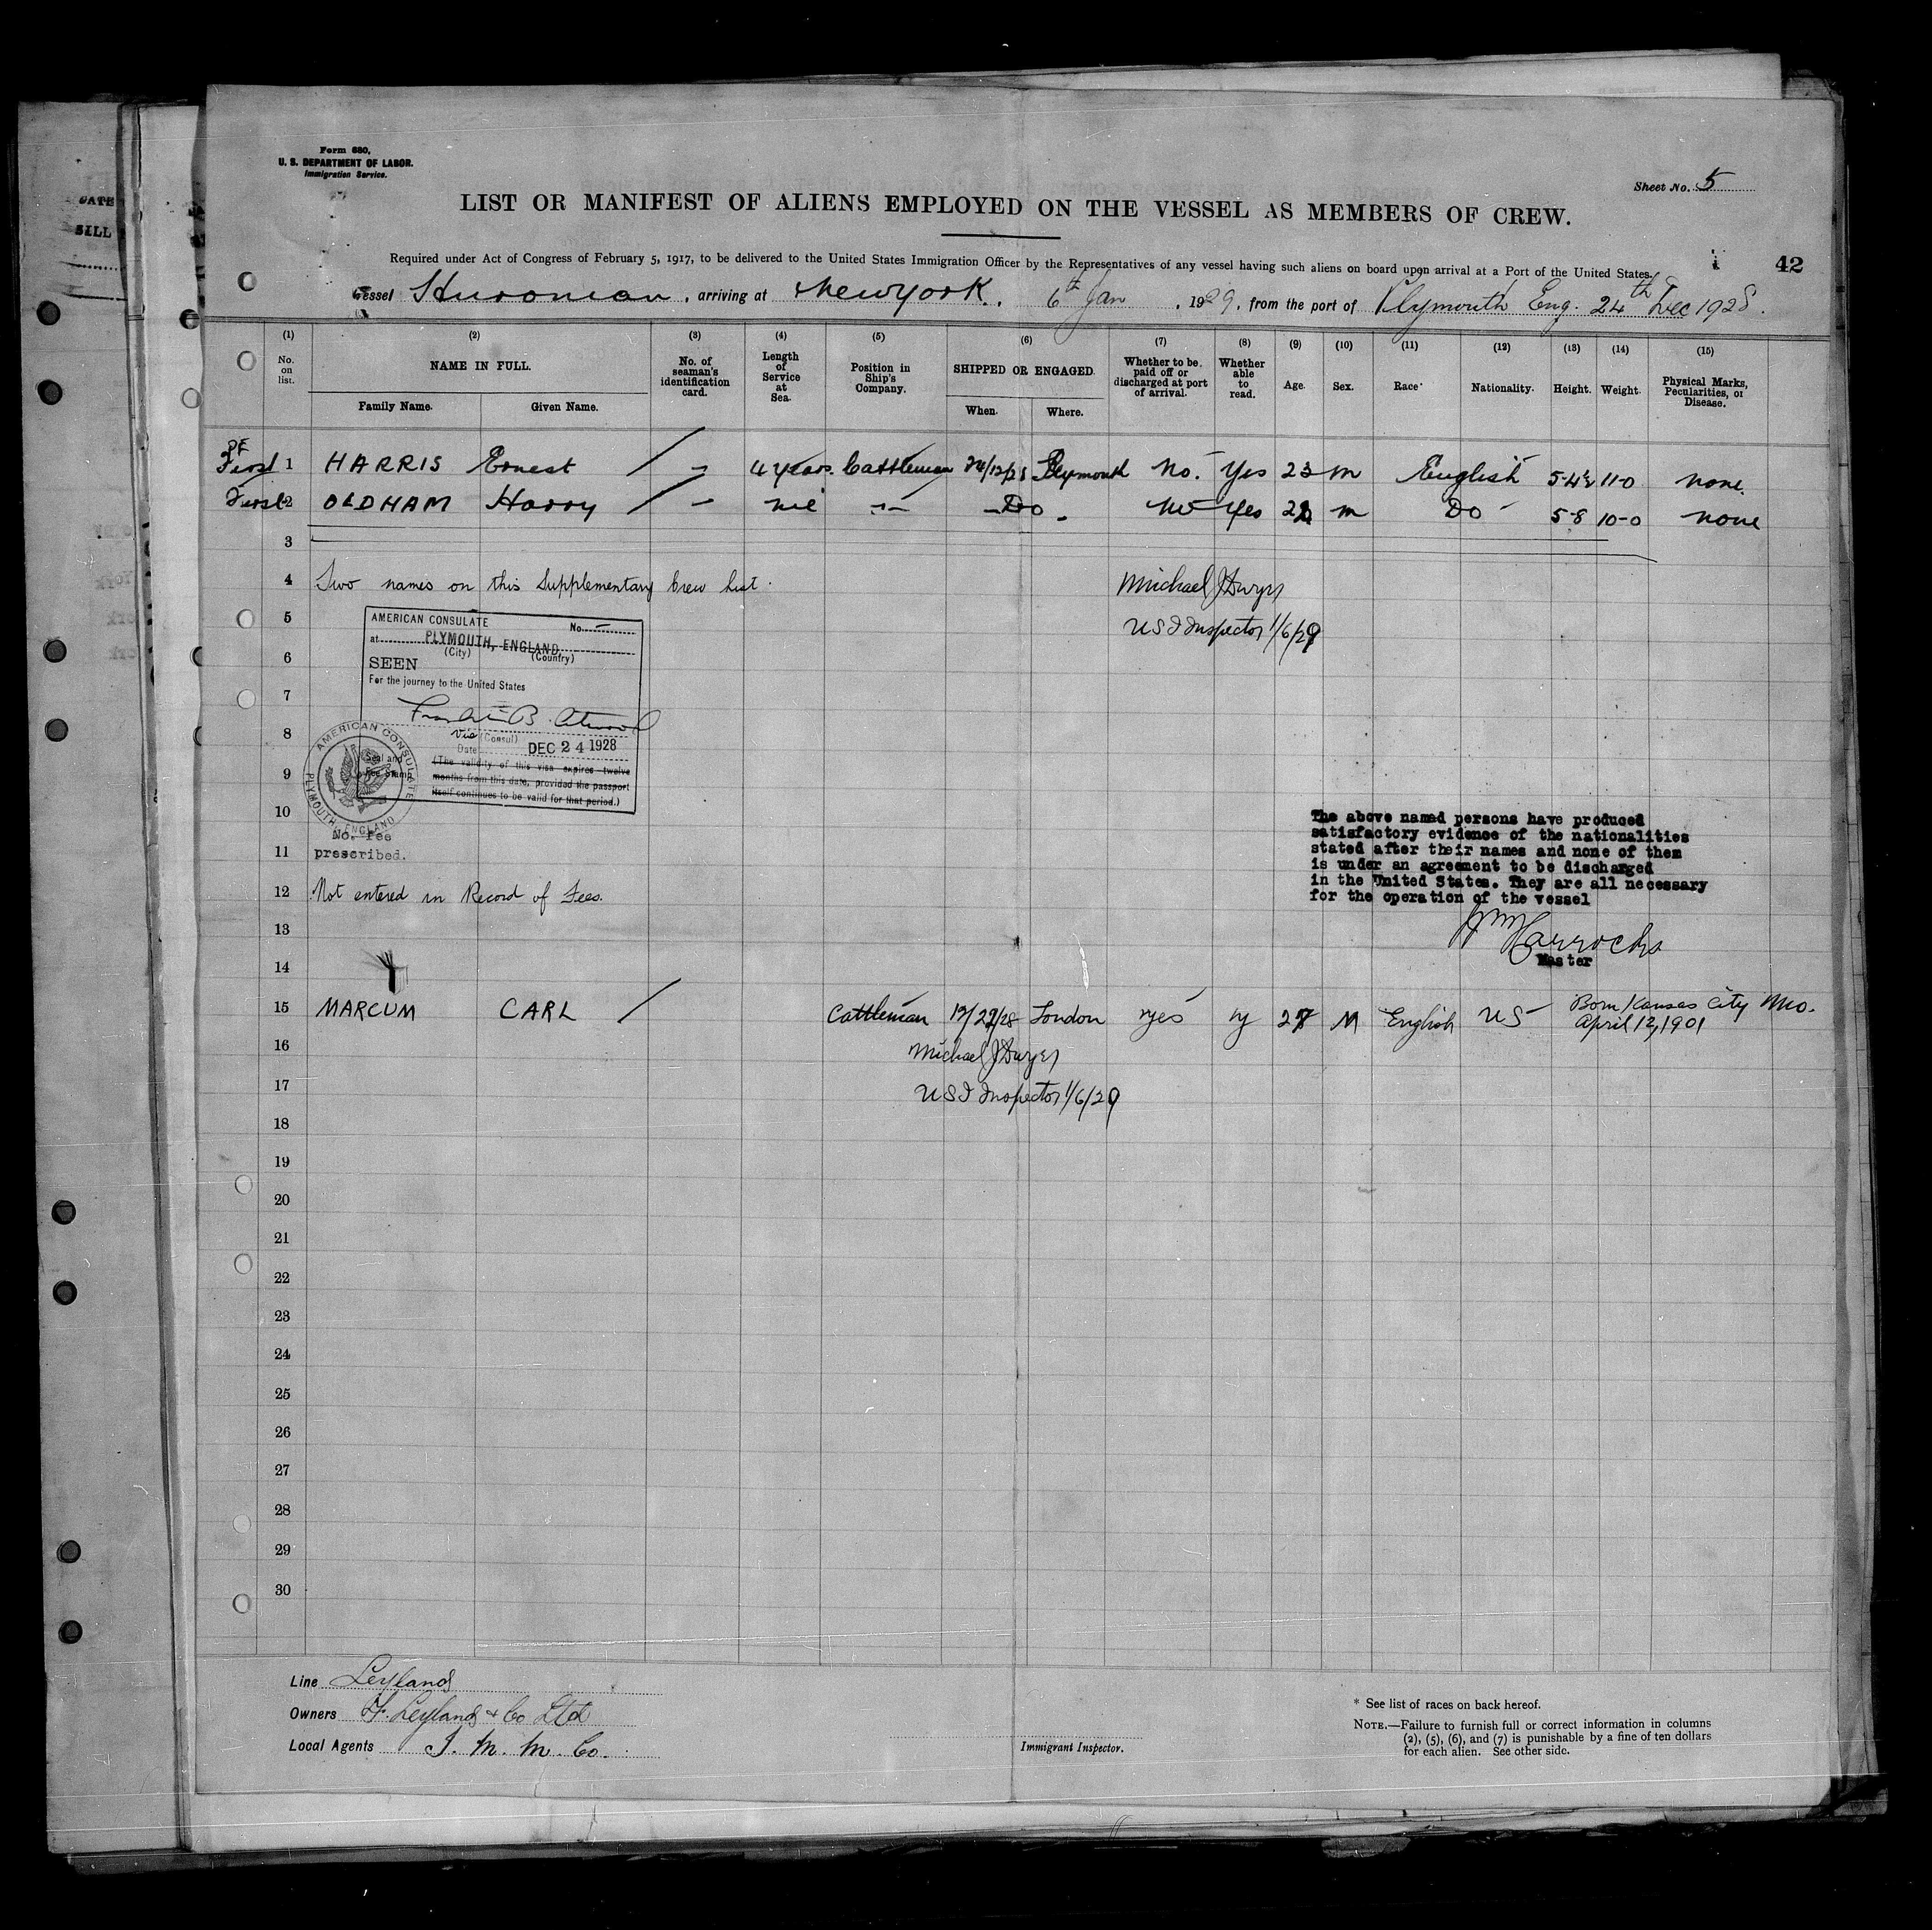 DATE
BILL
Form 680,
U. S. DEPARTMENT OF LABOR.
Immigration Service.
Sheet No. 5
LIST OR MANIFEST OF ALIENS EMPLOYED ON THE VESSEL AS MEMBERS OF CREW.
Required under Act of Congress of February 5, 1917, to be delivered to the United States Immigration Officer by the Representatives of any vessel having such aliens on board upon arrival at a Port of the United States.
42
Vessel Huronian, arriving at New York. 6th Jan, 1929, from the port of Plymouth Eng. 24th Dec 1928.
(1) (2) (3) (4) (5) (6) (7) (8) (9) (10) (11) (12) (13) (14) (15)
No. on list.
NAME IN FULL.
Family Name. Given Name.
No. of seaman's identification card.
Length of Service at Sea.
Position in Ship's Company.
SHIPPED OR ENGAGED.
When. Where.
Whether to be paid off or discharged at port of arrival.
Whether able to read.
Age. Sex. Race* Nationality. Height. Weight.
Physical Marks, Pecularities, or Disease.
First 1 HARRIS Ernest / – 4 years. Cattleman 24/12/28 Plymouth No. Yes 23 m English 5-4½ 11-0 none.
First 2 OLDHAM Harry / – nil -"- -Do- No Yes 22 m Do 5-8 10-0 none
3
4 Two names on this Supplementary Crew List. Michael J Dwyer
5 USI Inspector 1/6/29
AMERICAN CONSULATE No. –
at PLYMOUTH, ENGLAND.
(City) (Country)
6
SEEN
For the journey to the United States
7
8
Vice (Consul)
Date DEC 24 1928
(The validity of this visa expires twelve
months from this date, provided the passport
itself continues to be valid for that period.)
AMERICAN CONSULATE
PLYMOUTH, ENGLAND
Seal and
Fee Stamp
9
10
No. Fee
prescribed.
11
The above named persons have produced
satisfactory evidence of the nationalities
stated after their names and none of them
is under an agreement to be discharged
in the United States. They are all necessary
for the operation of the vessel
12 Not entered in Record of Fees.
13
Master
14
15 MARCUM CARL / Cattleman 12/22/28 London yes y 27 M English US Born Kansas City Mo.
April 12, 1901
16 Michael J Dwyer
17 USI Inspector 1/6/29
18
19
20
21
22
23
24
25
26
27
28
29
30
Line Leyland
Owners F. Leyland & Co Ltd
Local Agents I. M. M. Co.
Immigrant Inspector.
* See list of races on back hereof.
NOTE.—Failure to furnish full or correct information in columns
(2), (5), (6), and (7) is punishable by a fine of ten dollars
for each alien. See other side.